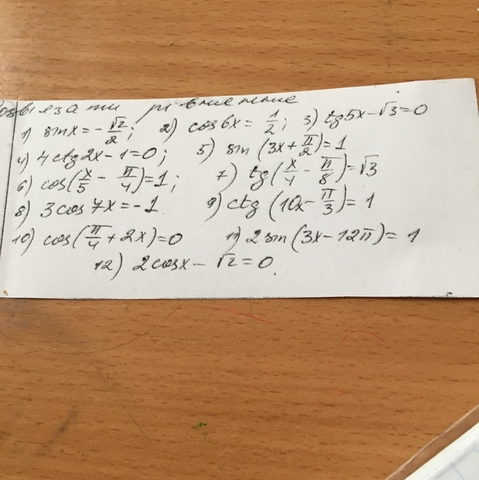 1) sin x = -√2/2; 2) cos 6x = 1/2; 3) tg 5x - √3 = 0
4) 4ctg 2x - 1 = 0; 5) sin (3x + π/2) = 1
6) cos(x/5 - π/4) = 1; 7) tg(x/4 - π/8) = √3
8) 3 cos 7x = -1 9) ctg (10x - π/3) = 1
10) cos(π/4 + 2x) = 0 11) 2 sin (3x - 12π) = 1
12) 2 cos x - √2 = 0.